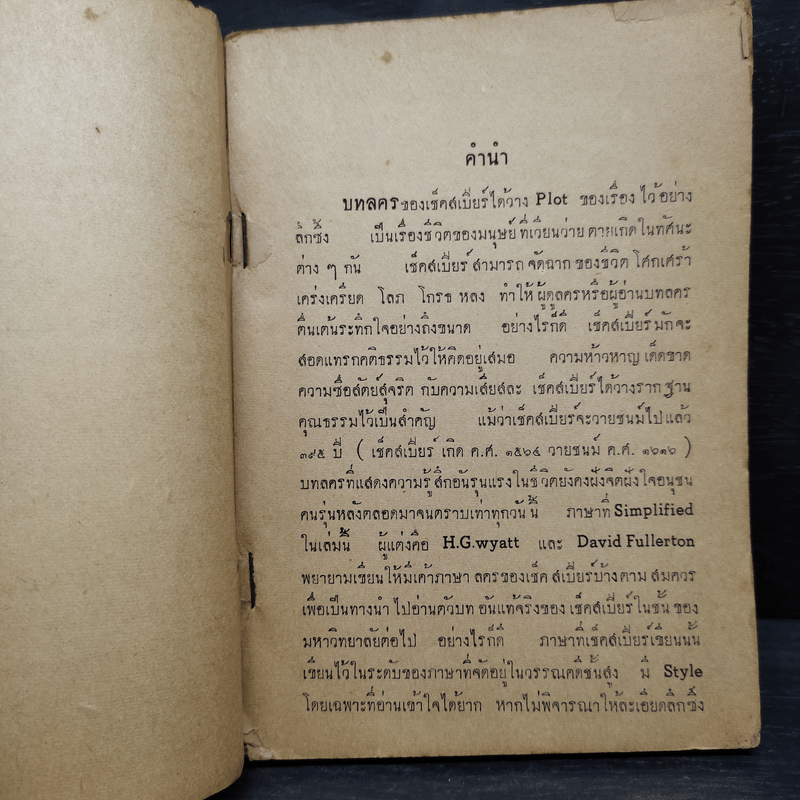 คำนำ
บทละครของเช็คส์เปียร์ได้วาง Plot ของเรื่องไว้อย่าง
ลึกซึ้ง เป็นเรื่องชีวิตของมนุษย์ที่เวียนว่ายตายเกิดในทัศนะ
ต่าง ๆ กัน เช็คส์เปียร์สามารถจัดฉากของชีวิต โศกเศร้า
เคร่งเครียด โลภ โกรธ หลง ทำให้ผู้ดูละครหรือผู้อ่านบทละคร
ตื่นเต้นระทึกใจอย่างถึงขนาด อย่างไรก็ดี เช็คส์เปียร์มักจะ
สอดแทรกคติธรรมไว้ให้คิดอยู่เสมอ ความห้าวหาญ เด็ดขาด
ความซื่อสัตย์สุจริต กับความเสียสละ เช็คส์เปียร์ได้วางรากฐาน
คุณธรรมไว้เป็นสำคัญ แม้ว่าเช็คส์เปียร์จะวายชนม์ไปแล้ว
๓๙๕ ปี ( เช็คส์เปียร์ เกิด ค.ศ. ๑๕๖๔ วายชนม์ ค.ศ. ๑๖๑๖ )
บทละครที่แสดงความรู้สึกอันรุนแรงในชีวิตยังคงฝังจิตฝังใจอนุชน
คนรุ่นหลังตลอดมาจนตราบเท่าทุกวันนี้ ภาษาที่ Simplified
ในเล่มนี้ ผู้แต่งคือ H.G.wyatt และ David Fullerton
พยายามเขียนให้มีเค้าภาษา ละครของเช็คส์เปียร์บ้างตามสมควร
เพื่อเป็นทางนำไปอ่านตัวบท อันแท้จริงของเช็คส์เปียร์ในชั้นของ
มหาวิทยาลัยต่อไป อย่างไรก็ดี ภาษาที่เช็คส์เปียร์เขียนนั้น
เขียนไว้ในระดับของภาษาที่จัดอยู่ในวรรณคดีชั้นสูง มี Style
โดยเฉพาะที่อ่านเข้าใจได้ยาก หากไม่พิจารณาให้ละเอียดลึกซึ้ง